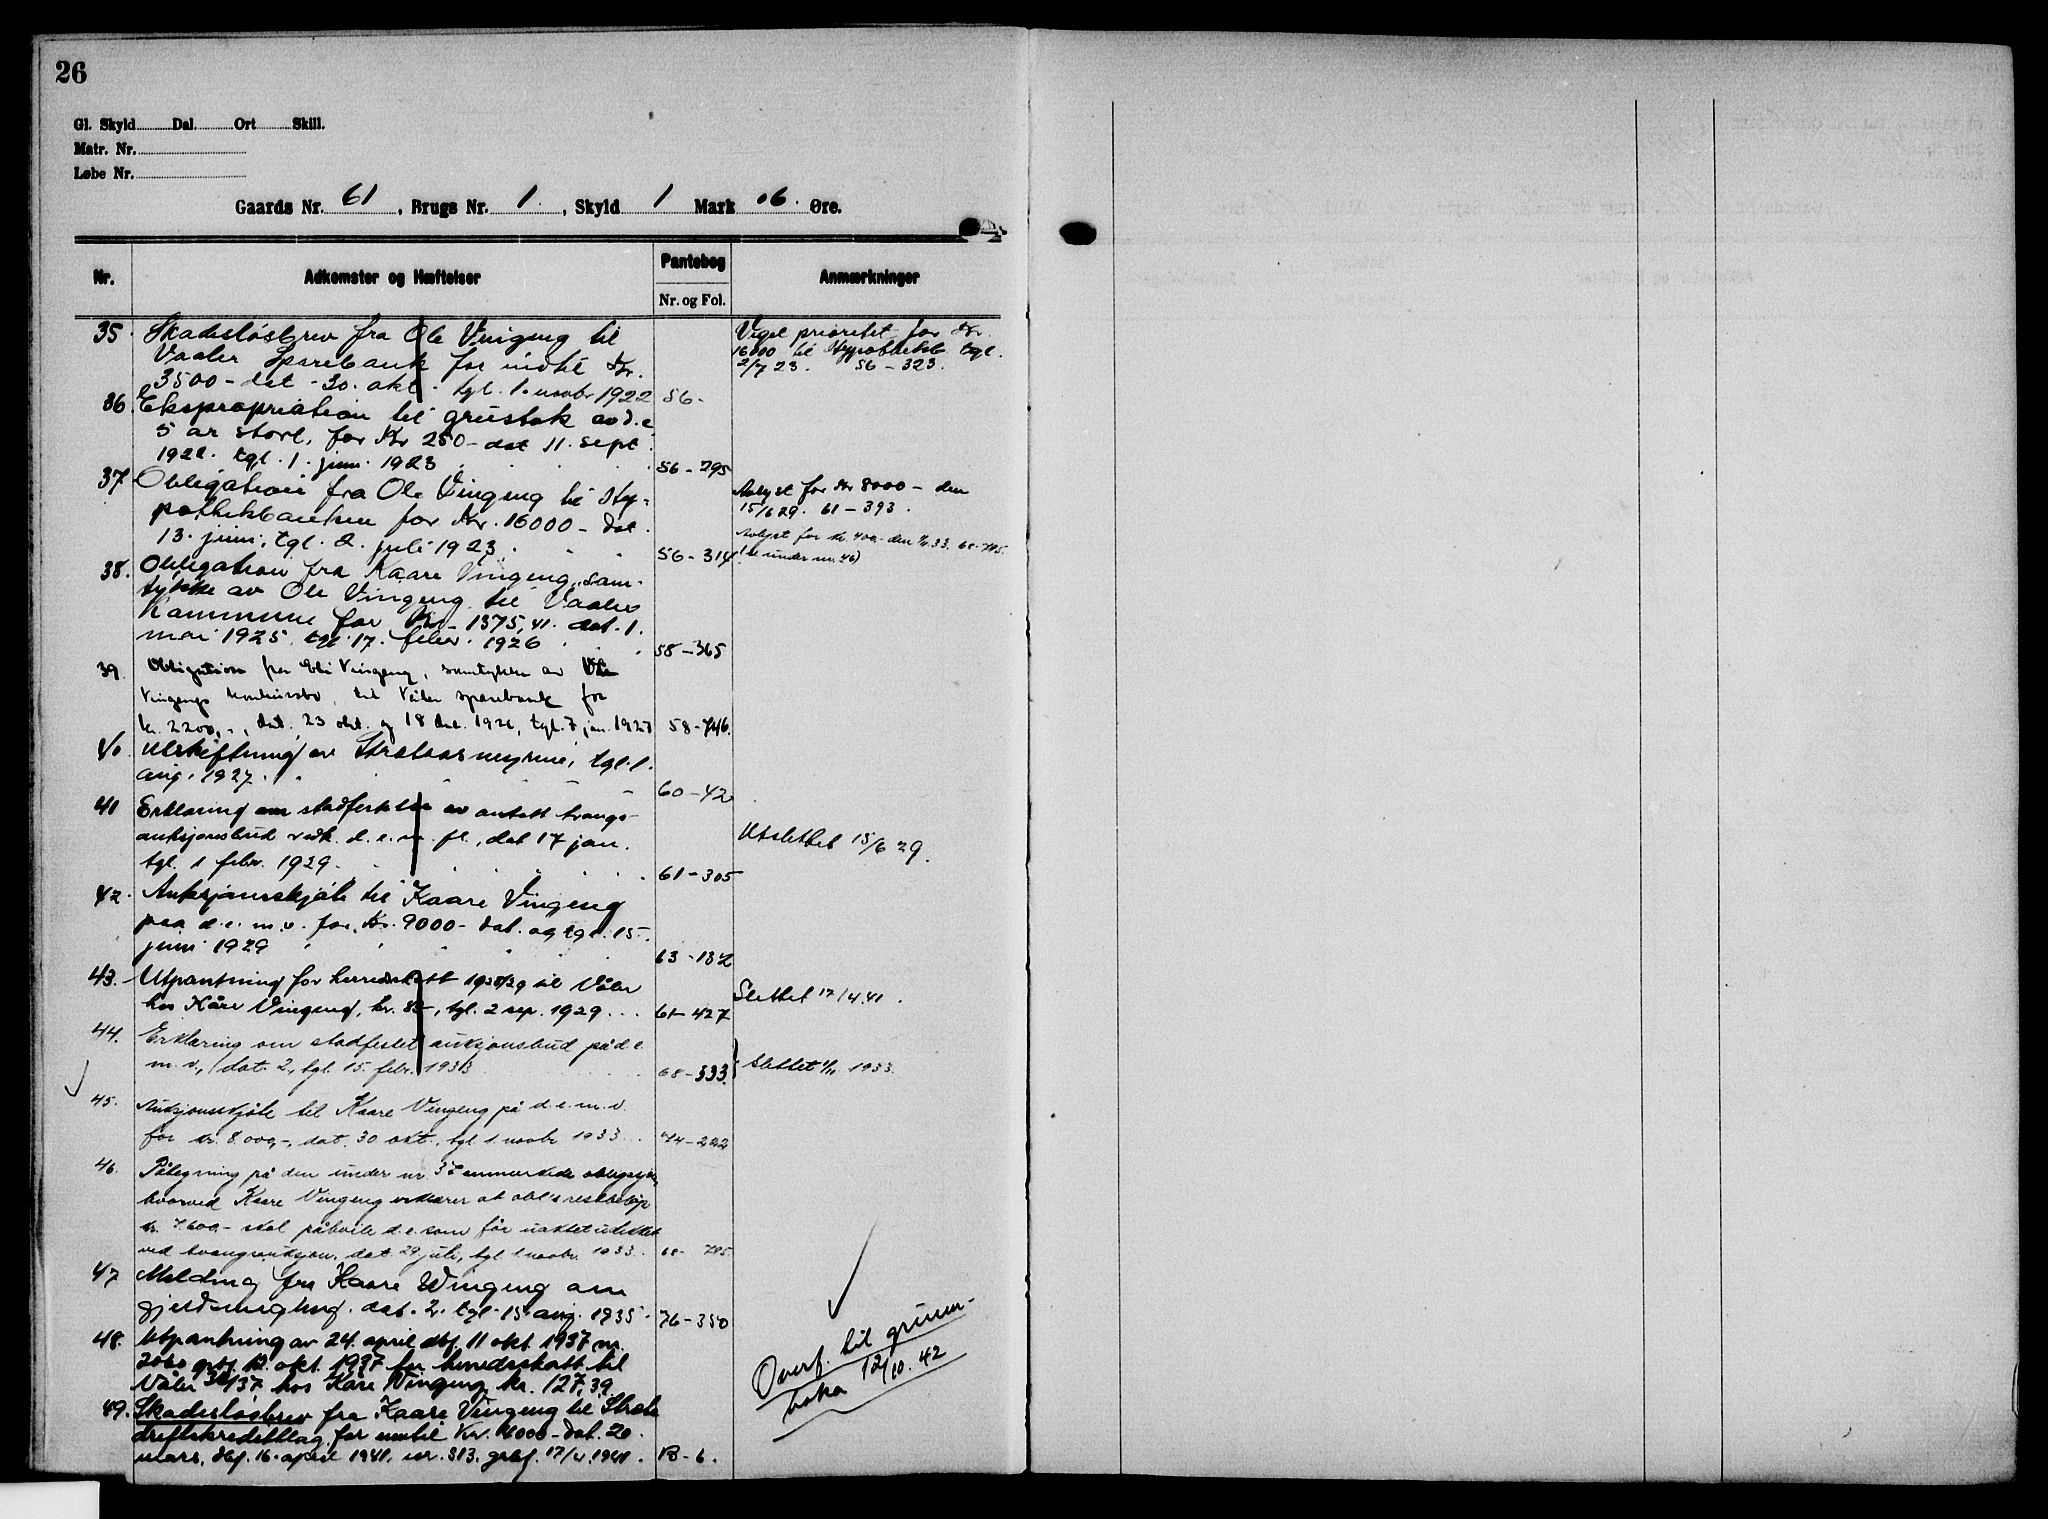 26
Gl. Skyld Dal. Ort Skill.
Matr. Nr.
Løbe Nr.
Gaards Nr. 61, Brugs Nr. 1., Skyld 1 Mark 06. Øre.
Nr. Adkomster og Hæftelser Pantebog Nr. og Fol. Anmærkninger
35. Skadesløsbrev fra Ole Vingeng til
Vaaler Sparebank for indtil Kr.
3500- dat. 30. okt. tgl. 1. novbr 1922 56-
Viget prioritet for Kr.
16000 til Hypotekbk tgl.
2/7 23. 56-323.
36. Ekspropriation til grustak av d.e.
5 ar stort, for Kr 250- dat 11. sept.
1922. tgl. 1. juni 1923 56-295
37. Obligation fra Ole Vingeng til Hy-
pothekbanken for Kr. 16000- dat.
13. juni, tgl. 2. juli 1923. 56-314
Avlyst for Kr 8000- den
15/6 29. 61-393.
Avlyst for kr. 400,- den 33. 68-785.
(se under nr. 46)
38. Obligation fra Kaare Vingeng, sam-
tykke av Ole Vingeng til Vaaler
kommune for Kr. 1375,41. dat. 1.
mai 1925. tgl. 17. febr. 1926 58-365
39. Obligation fra Eli Vingeng, samtykke av Ole
Vingengs konkursbo, til Våler sparebank for
kr. 2200,-, dat. 23 okt. og 18 des. 1926, tgl. 7 jan. 1927 58-746.
40. Utskiftning av tgl. 1.
aug. 1927. 60-42
41 Erklæring om stadfestelse av antatt tvangs-
auksjonsbud vedk. d.e.m.fl., dat 17 jan.
tgl. 1 febr. 1929. 61-305
Utslettet 15/6 29.
42. Auksjonsskjøte til Kaare Vingeng
paa d.e.m.v. for Kr. 9000- dat. og tgl. 15.
juni 1929 63-132
43. Utpantning for herredskatt 1928/29 til Våler
hos Kåre Vingeng, kr. 85-, tgl. 2 sep. 1929... 61-427
Slettet 17/4.41.
44. Erklæring om stadfestet auksjonsbud på d.e.
m.v., dat. 2, tgl. 15. febr. 1933 68-533.
Slettet 1/11 1933.
45. Auksjonsskjøte til Kaare Vingeng på d.e.m.v.
for kr. 8.000,-, dat. 30 okt., tgl 1. novbr 1933... 74-222
46. Påtegning på den under nr 37 anmerkede obligasjon,
hvorved Kaare Vingeng erklærer at obl.s restbeløp
kr. 7600,- skal påhvile d.e. som før uaktet udekket
ved tvangsauksjon, dat. 29 juli, tgl. 1. novbr. 1933. 68-785.
47 Melding fra Kaare Wingeng om
gjeldsmegling. dat. 2. tgl. 15. aug. 1935. 76-350
48. Utpantning av 24. april dbf. 11 okt. 1937 nr.
2060 grbf. 12. okt. 1937 for herredsskatt til
Våler 36/37 hos Kåre Vingeng kr. 127,39
49. Skadesløsbrev fra Kaare Vingeng til
driftskredittlag for inntil Kr. dat. 20.
mars, dbf. 16. april 1941. nr. 313. grbf. 17/4. 1941. B-6.
Overf. til grunn-
boka 12/10. 42